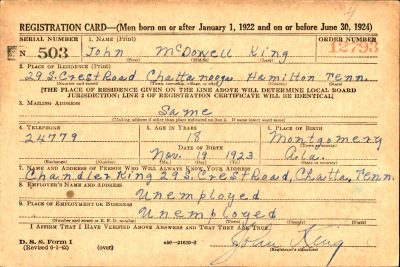 REGISTRATION CARD—(Men born on or after January 1, 1922 and on or before June 30, 1924)
SERIAL NUMBER 1. NAME (Print) ORDER NUMBER
N 503 John McDowell King 12793
(First) (Middle) (Last)
2. PLACE OF RESIDENCE (Print)
29 S. Crest Road Chattanooga Hamilton Tenn.
[THE PLACE OF RESIDENCE GIVEN ON THE LINE ABOVE WILL DETERMINE LOCAL BOARD
JURISDICTION; LINE 2 OF REGISTRATION CERTIFICATE WILL BE IDENTICAL]
3. MAILING ADDRESS
Same
[Mailing address if other than place indicated on line 2. If same insert word same]
4. TELEPHONE 5. AGE IN YEARS 6. PLACE OF BIRTH
24779 18 Montgomery
DATE OF BIRTH
Nov. 19 1923 Ala.
(Exchange) (Number) (Mo.) (Day) (Yr.) (State or country)
7. NAME AND ADDRESS OF PERSON WHO WILL ALWAYS KNOW YOUR ADDRESS
Chandler King 29 S. Crest Road, Chatta, Tenn.
8. EMPLOYER'S NAME AND ADDRESS
Unemployed
9. PLACE OF EMPLOYMENT OR BUSINESS
Unemployed
(Number and street or R. F. D. number) (Town) (County) (State)
I AFFIRM THAT I HAVE VERIFIED ABOVE ANSWERS AND THAT THEY ARE TRUE.
John King
D. S. S. Form 1
(Revised 6-9-42) (over) (Registrant's signature)